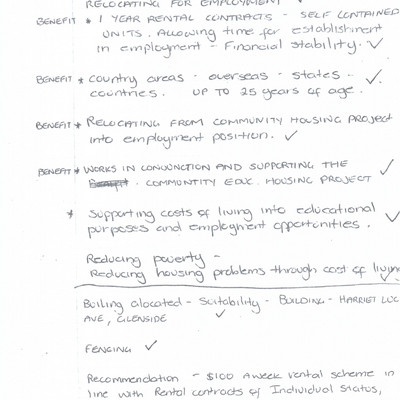 RELOCATING FOR EMPLOYMENT
BENEFIT * 1 YEAR RENTAL CONTRACTS - SELF CONTAINED
UNITS. Allowing time for establishment
in employment - Financial stability. ✓
BENEFIT * country areas - overseas - states - ✓.
countries. UP TO 25 years of age.
BENEFIT * RELOCATING FROM COMMUNITY HOUSING PROJECT
into employment position. ✓
BENEFIT * WORKS IN CONJUNCTION AND SUPPORTING THE ✓
- COMMUNTITY EDUC. HOUSING PROJECT
* Supporting costs of living into educational ✓
purposes and employment opportunities.
Reducing poverty -
Reducing housing problems through cost of living ✓
Builing alocated - Suitability - BUILDING - HARRIET LUC
AVE, GLENSIDE ✓
FENCING ✓
Recommendation - $100 A week rental scheme in
line with Rental contracts of Individual Status,